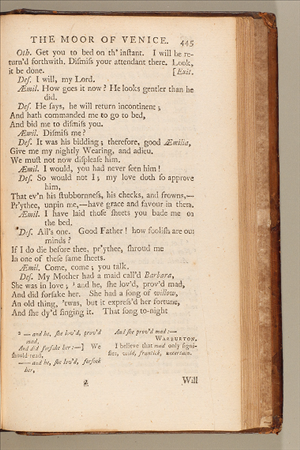 THE MOOR OF VENICE. 445
Oth. Get you to bed on th' inſtant. I will be re-
turn'd forthwith. Diſmiſs your attendant there. Look,
it be done. [Exit.
Deſ. I will, my Lord.
Æmil. How goes it now? He looks gentler than he
did.
Deſ. He ſays, he will return incontinent;
And hath commanded me to go to bed,
And bid me to diſmiſs you.
Æmil. Diſmiſs me?
Deſ. It was his bidding; therefore, good Æmilia,
Give me my nightly Wearing, and adieu.
We muſt not now diſpleaſe him.
Æmil. I would, you had never ſeen him!
Deſ. So would not I; my love doth ſo approve
him,
That ev'n his ſtubbornneſs, his checks, and frowns,—
Pr'ythee, unpin me,—have grace and favour in them.
Æmil. I have laid thoſe ſheets you bade me on
the bed.
Deſ. All's one. Good Father! how fooliſh are our
minds?
If I do die before thee, pr'ythee, ſhroud me
In one of theſe ſame ſheets.
Æmil. Come, come; you talk.
Deſ. My Mother had a maid call'd Barbara,
She was in love; and he, ſhe lov'd, prov'd mad,
And did forſake her. She had a ſong of willow,
An old thing, 'twas, but it expreſs'd her fortune,
And ſhe dy'd ſinging it. That ſong to-night
— and he, ſhe lov'd, prov'd
mad,
And did forſake her:—] We
ſhould read,
—and he, ſhe lov'd, forſook
her,
And ſhe prov'd mad:—
WARBURTON.
I believe that mad only ſigni-
fies, wild, frantick, uncertain.
Will